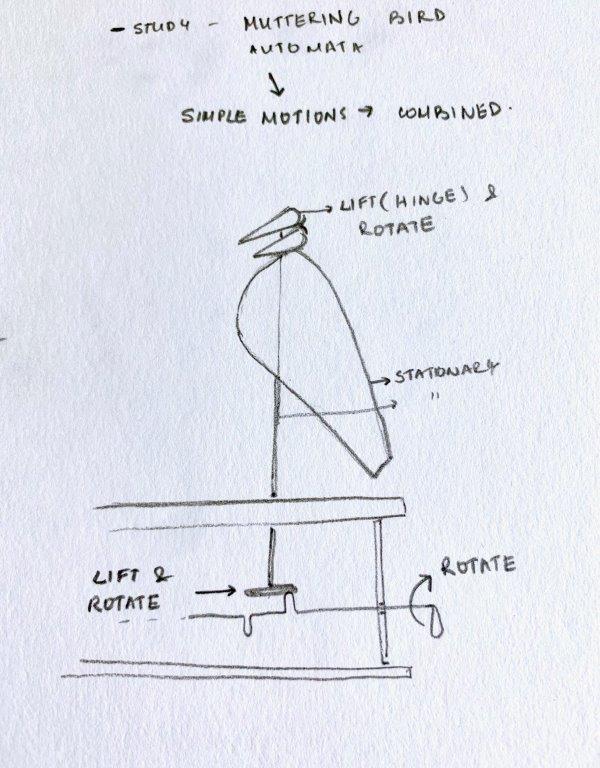 - STUDY - MUTTERING BIRD
AUTOMATA
SIMPLE MOTIONS → COMBINED.
LIFT (HINGE) &
ROTATE
STATIONARY
"
LIFT &
ROTATE
ROTATE